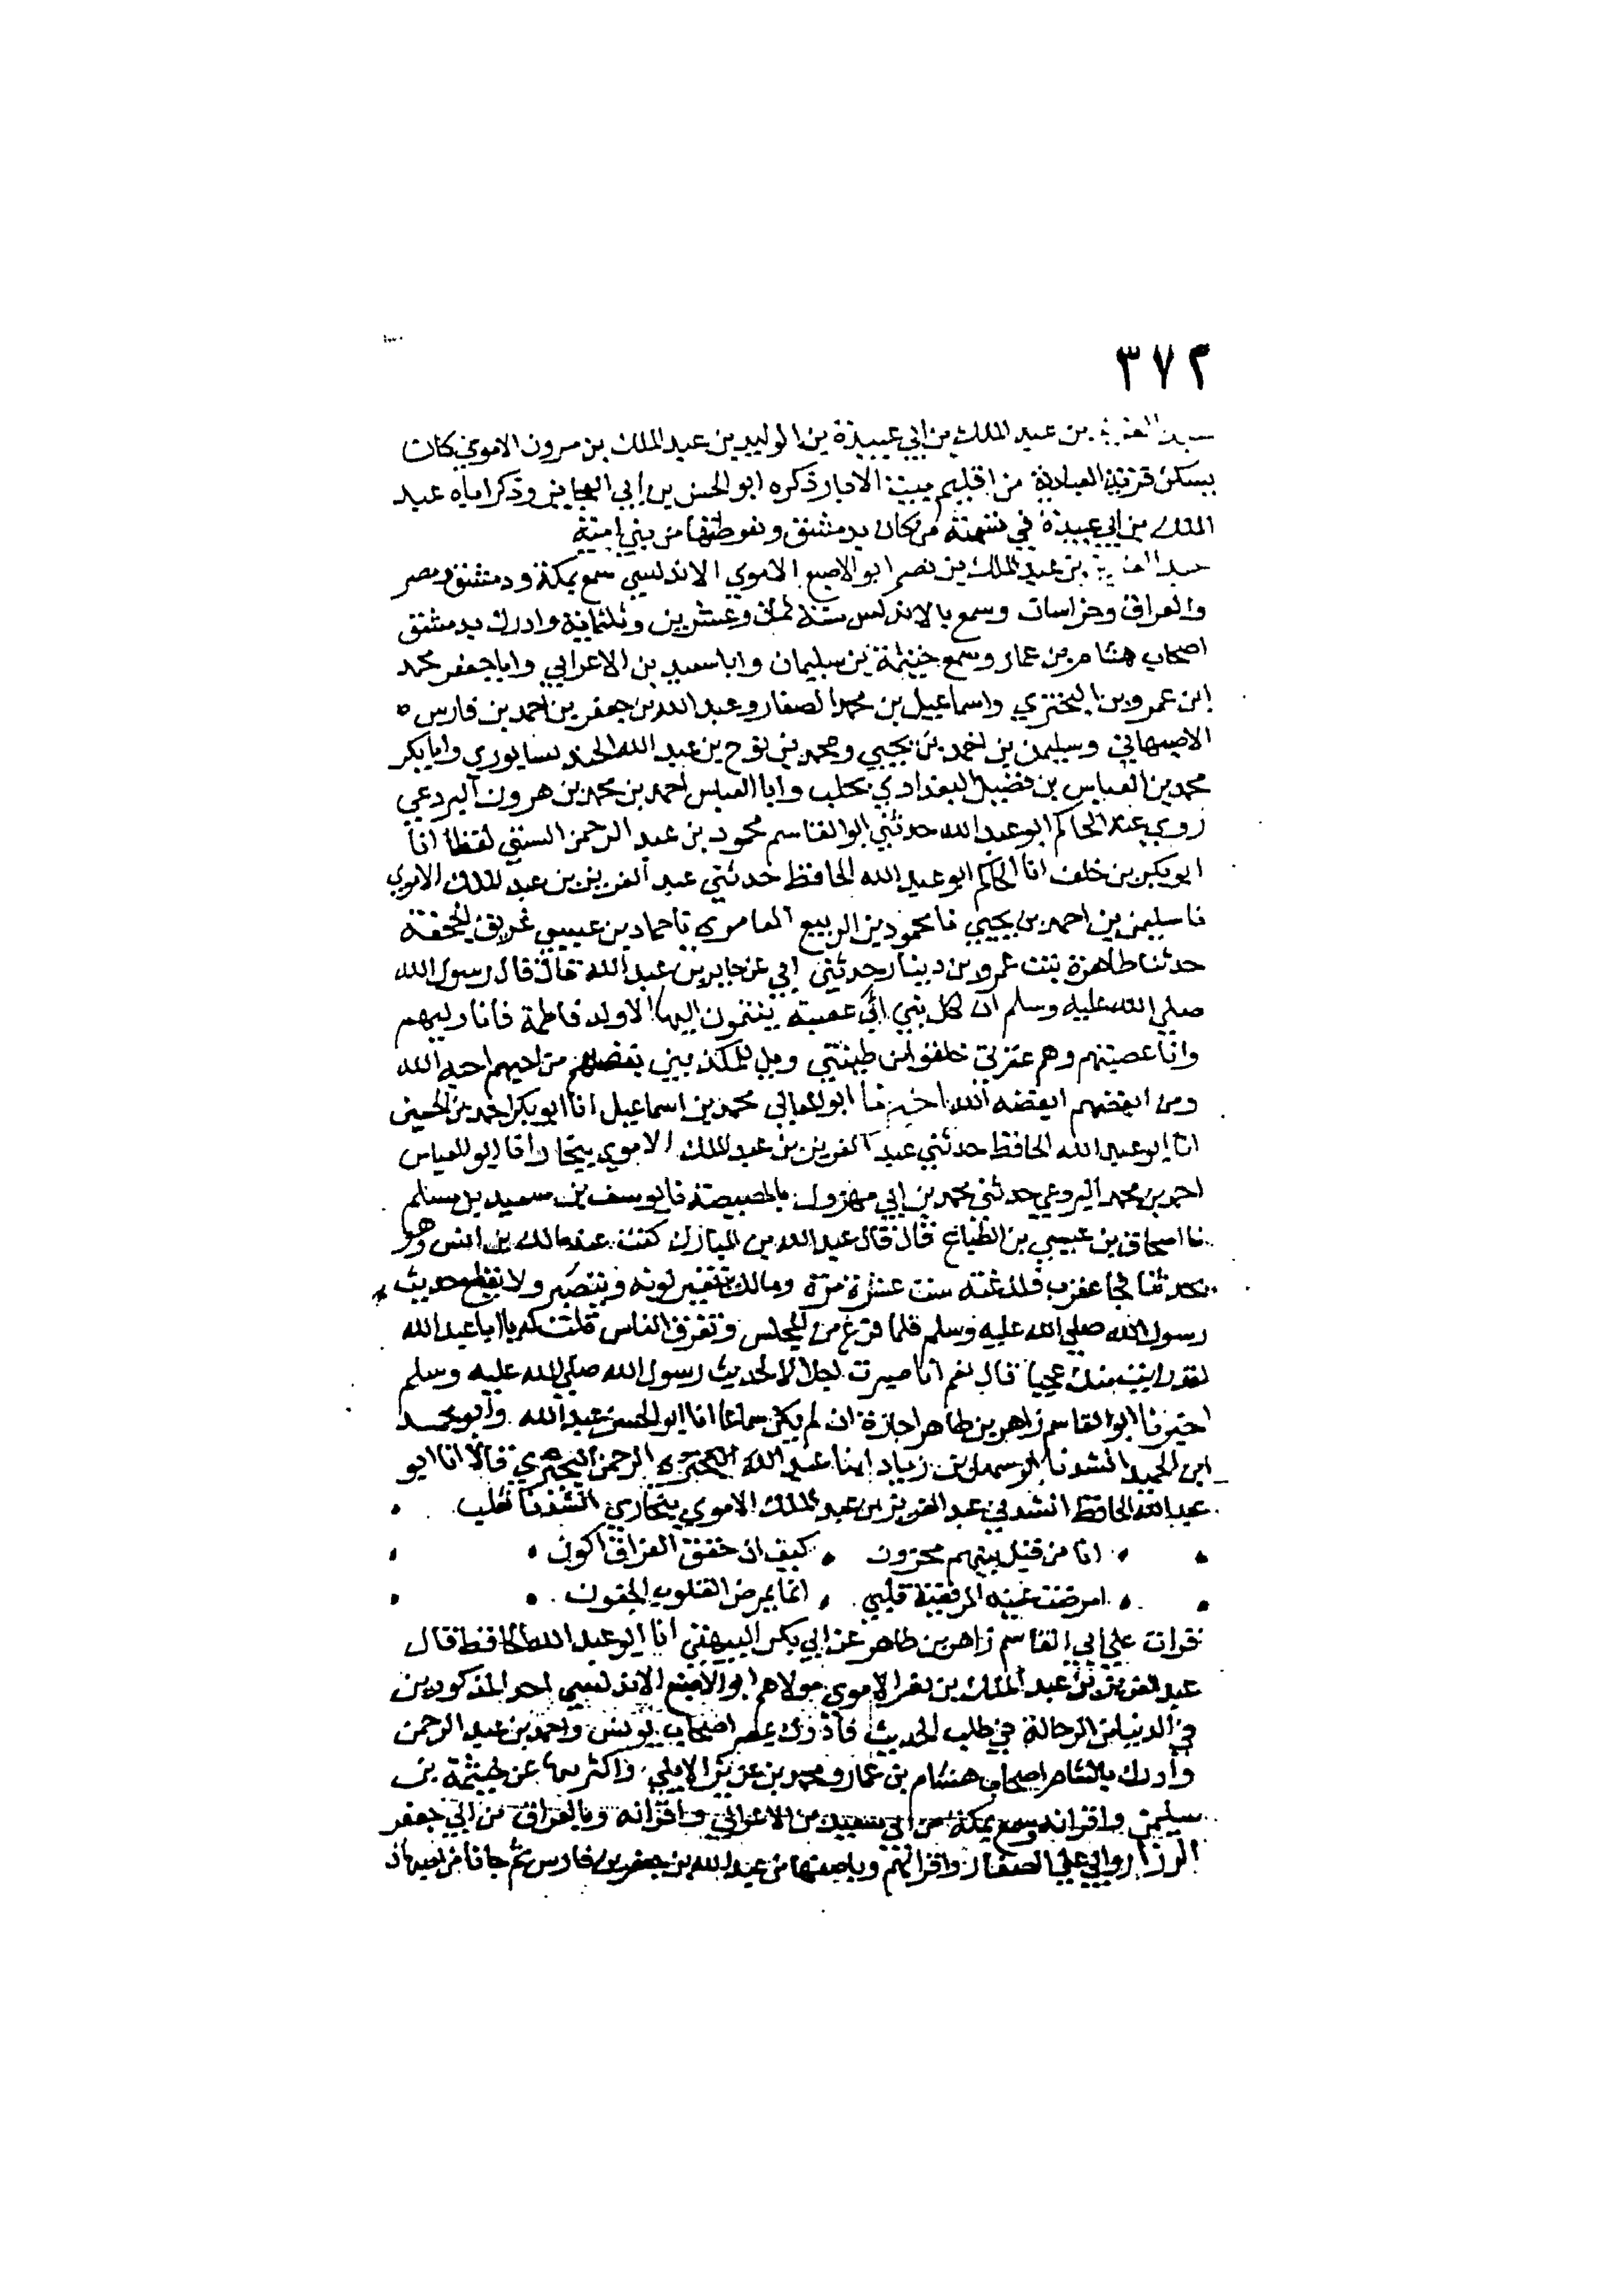 ٣٧٢
عبد العزيز بن عبد الملك بن ابي عبيدة بن الوليد بن عبد الملك بن مرون الاموي كان
يسكن قرية العبادية من اقليم بيت الابار ذكره ابو الحسن بن ابي العجايز وذكر اباه عبد
الملك بن ابي عبيدة في تسمية من كان بدمشق وغوطتها من بني امية
عبد العزيز بن عبد الملك بن نصر ابو الاصبغ الاموي الاندلسي سمع بمكة ودمشق ومصر
والعراق وخراسان وسمع بالاندلس سنة وعشرين وثلثماية وادرك بدمشق
اصحاب هشام بن عمار وسمع خيثمة بن سليمان وابا سعيد بن الاعرابي وابا جعفر محمد
ابن عمرو بن البختري واسماعيل بن محمد الصفار وعبد الله بن جعفر بن احمد بن فارس
الاصبهاني وسليمن بن احمد بن يحيي ومحمد بن نوح بن عبد الله الجند نسابوري وابا بكر
محمد بن العباس بن فضيل البغدادي بحلب وابا العباس احمد بن محمد بن هرون البردعي
روي عنه الحاكم ابو عبد الله حدثني ابو القاسم محمود بن عبد الرحمن البستي لفظا انا
ابو بكر بن خلف انا الحاكم ابو عبد الله الحافظ حدثني عبد العزيز بن عبد الملك الاموي
نا سليمن بن احمد بن يحيي نا محمود بن الربيع العامري نا حماد بن عيسي غريق الجحفة
حدثنا طاهرة بنت عمرو بن دينار حدثني ابي عن جابر بن عبد الله قال قال رسول الله
صلي الله عليه وسلم ان لكل بني اب عصبة ينتمون اليها الا ولد فاطمة فانا وليهم
وانا عصبتهم وهم عترتي خلقوا من طينتي ويل للمكذبين بفضلهم من احبهم احبه الله
ومن ابغضهم ابغضه الله اخبرنا ابو المعالي محمد بن اسماعيل انا ابو بكر احمد بن الحسين
انا ابو عبد الله الحافظ حدثني عبد العزيز بن عبد الملك الاموي ببخارا نا ابو العباس
احمد بن محمد البردعي حدثني محمد بن ابي مهزول بالمصيصة نا يوسف بن سعيد بن مسلم
نا اسحاق بن عيسي بن الطباع قال قال عبد الله بن المبارك كنت عند مالك بن انس وهو
يحدثنا فجا عقرب فلدغته ست عشرة مرة ومالك يتغير لونه ويتصبر ولا يقطع حديث
رسول الله صلي الله عليه وسلم فلما فرغ من المجلس وتفرق الناس قلت له يا ابا عبد الله
لقد رايت منك عجبا قال نعم انا صبرت اجلالا لحديث رسول الله صلي الله عليه وسلم
اخبرنا ابو القاسم زاهر بن طاهر اجازة ان لم يكن سماعا انا ابو الحسن عبد الله وابو محمد
ابن الحميد انشدنا ابو سهل بن زياد ابنا عبد الرحمن البحتري قالا انا ابو
عبد الله الحافظ انشدني عبد العزيز بن عبد الملك الاموي ببخاري انشدنا ثعلب
انا من قبل بينهم محزون كيف ان حقق الفراق اكون
امرضت عينه المرقبة قلبي انما يمرض القلوب الجفون
قرات علي ابي القاسم زاهر بن طاهر عن ابي بكر البيهقي انا ابو عبد الله الحافظ قال
عبد العزيز بن عبد الملك بن نصر الاموي مولاهم ابو الاصبغ الاندلسي احد المذكورين
في الدنيا من الرحالة في طلب الحديث فادرك بمصر اصحاب يونس واحمد بن عبد الرحمن
وادرك بالشام اصحاب هشام بن عمار ومحمد بن عزيز الايلي واكثر بها عن خيثمة بن
سليمن واقرانه وسمع بمكة من ابي سعيد بن الاعرابي واقرانه وبالعراق من ابي جعفر
الرزاز وابي علي الصفار واقرانهم وباصبهان من عبد الله بن جعفر بن فارس ثم جانا من اصبهان